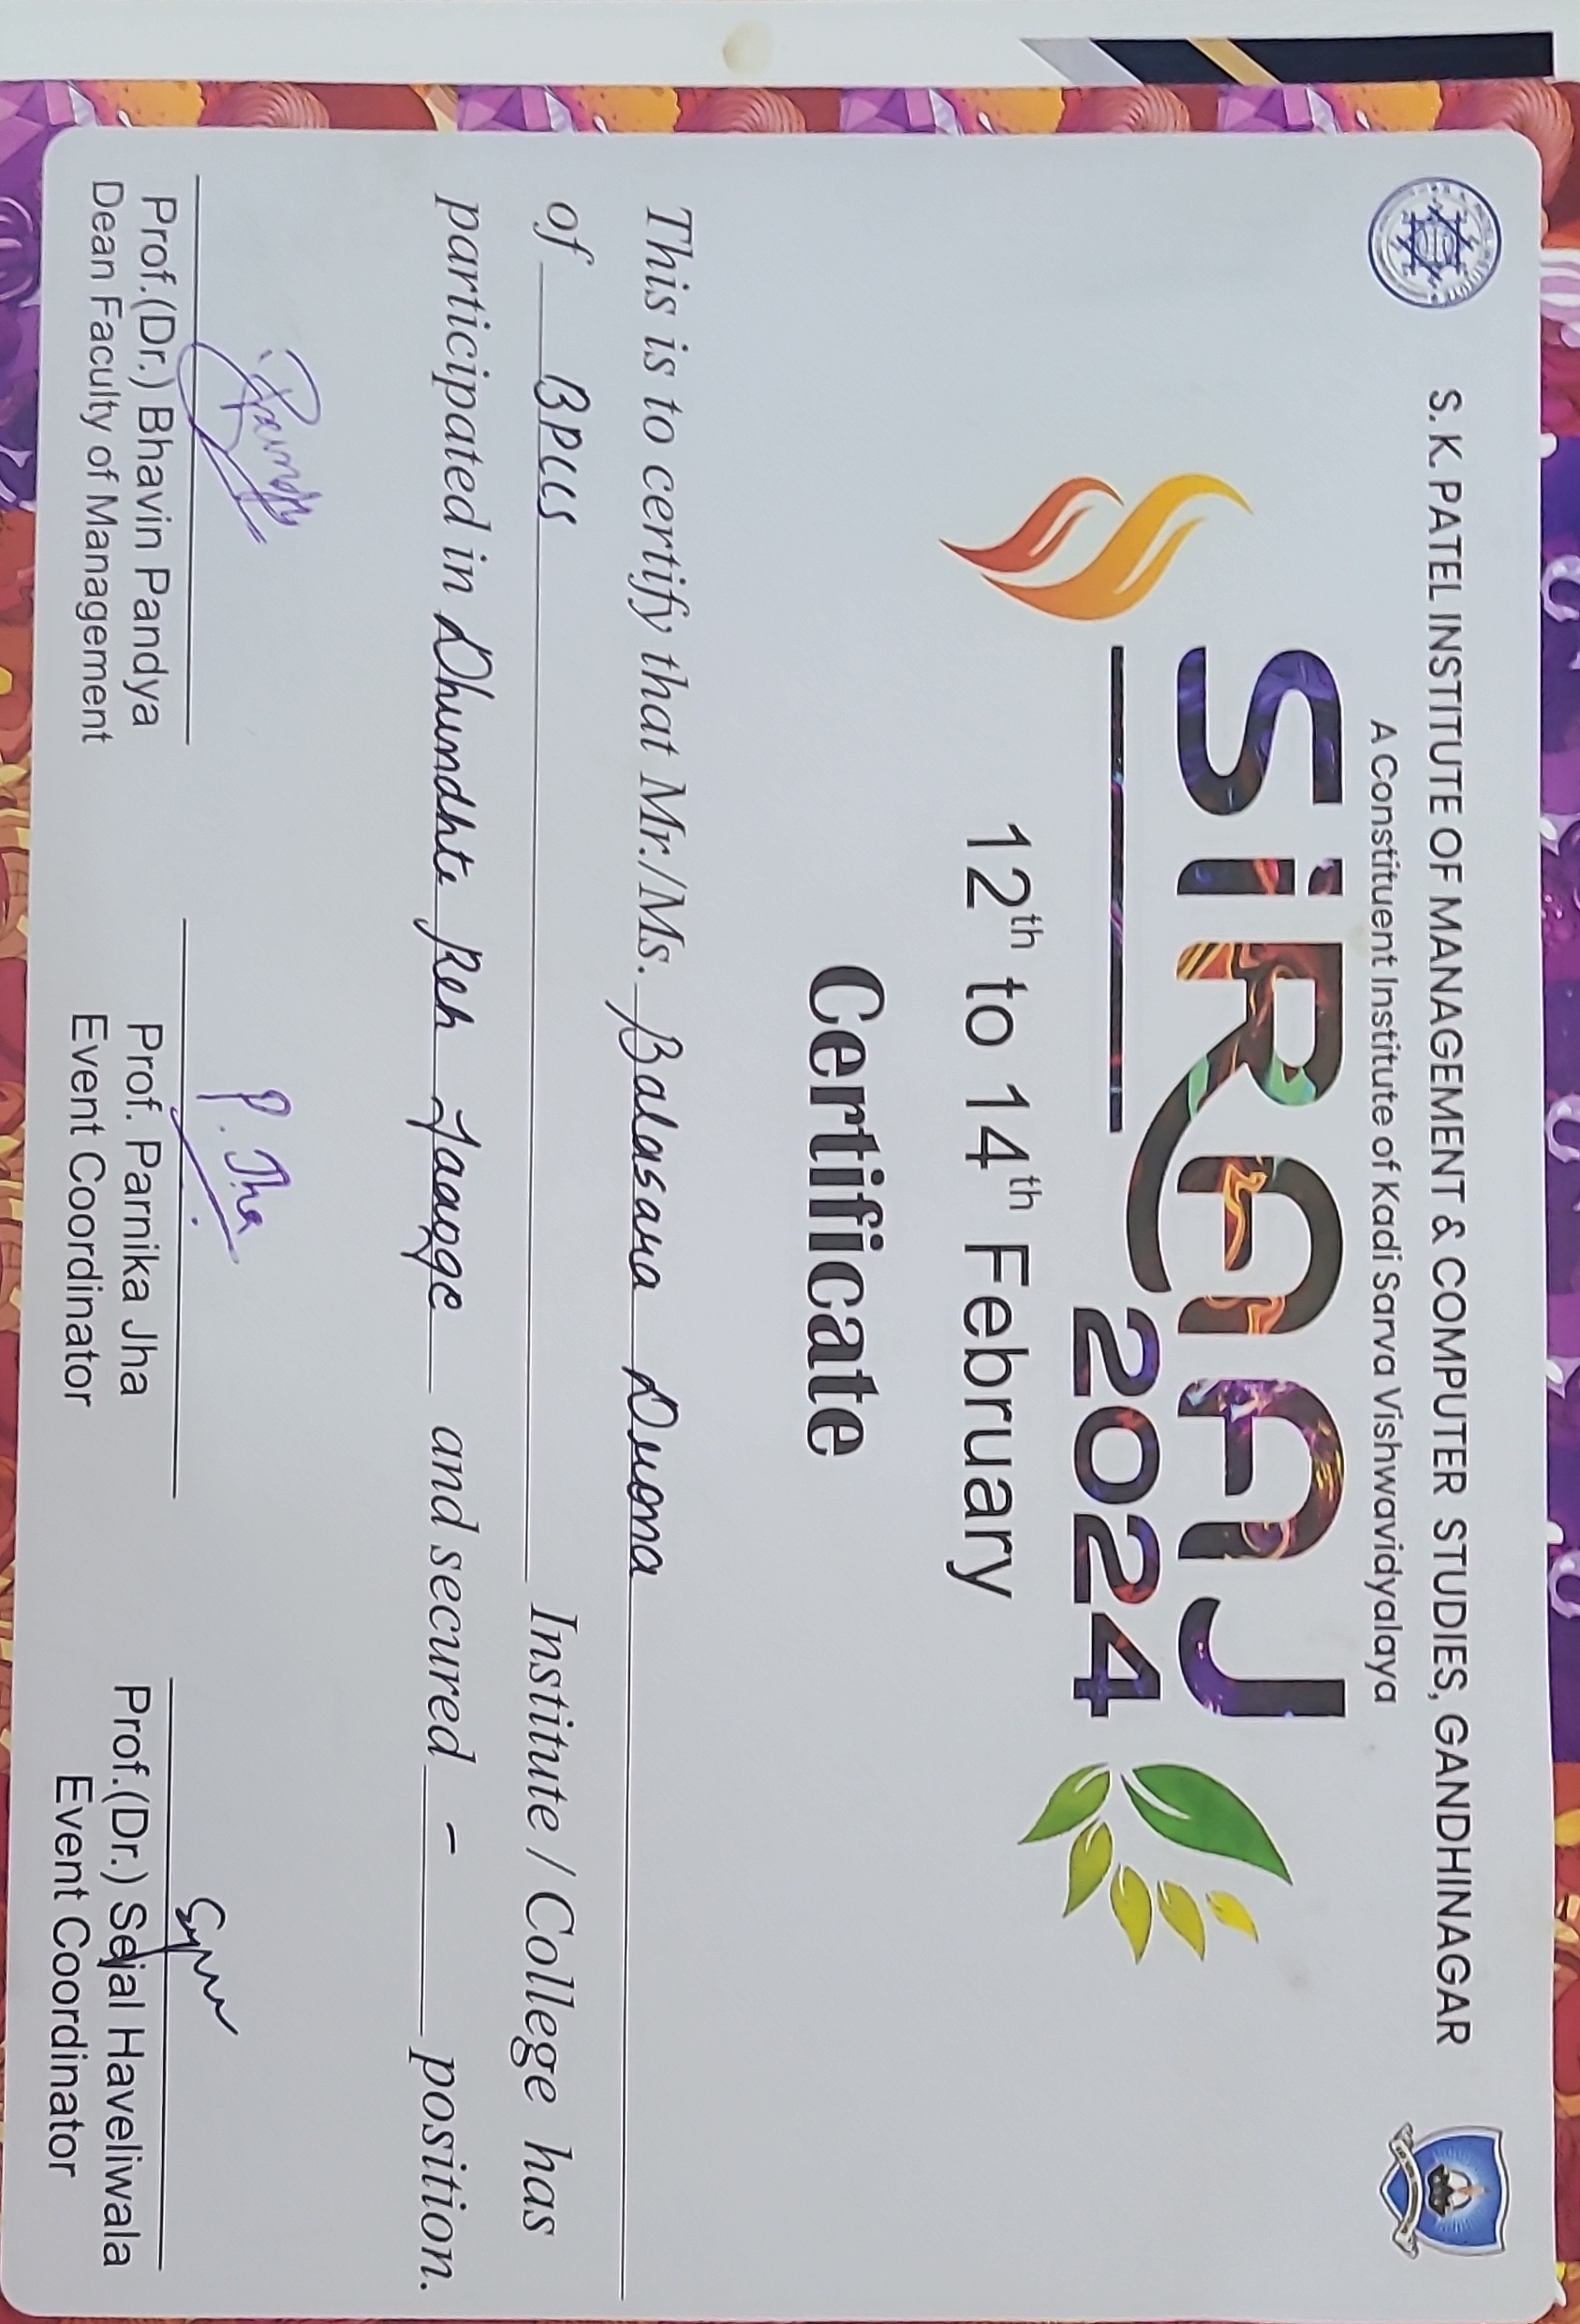 S. K. PATEL INSTITUTE OF MANAGEMENT & COMPUTER STUDIES, GANDHINAGAR
A Constituent Institute of Kadi Sarva Vishwavidyalaya
SiRAAJ
2024
12th to 14th February
Certificate
This is to certify that Mr./Ms. Balasara Drona
of BPCCS Institute / College has
participated in Dhundhte Reh Jaaoge and secured - position.
P. Jha
Prof.(Dr.) Bhavin Pandya Prof. Parnika Jha Prof.(Dr.) Sejal Haveliwala
Dean Faculty of Management Event Coordinator Event Coordinator